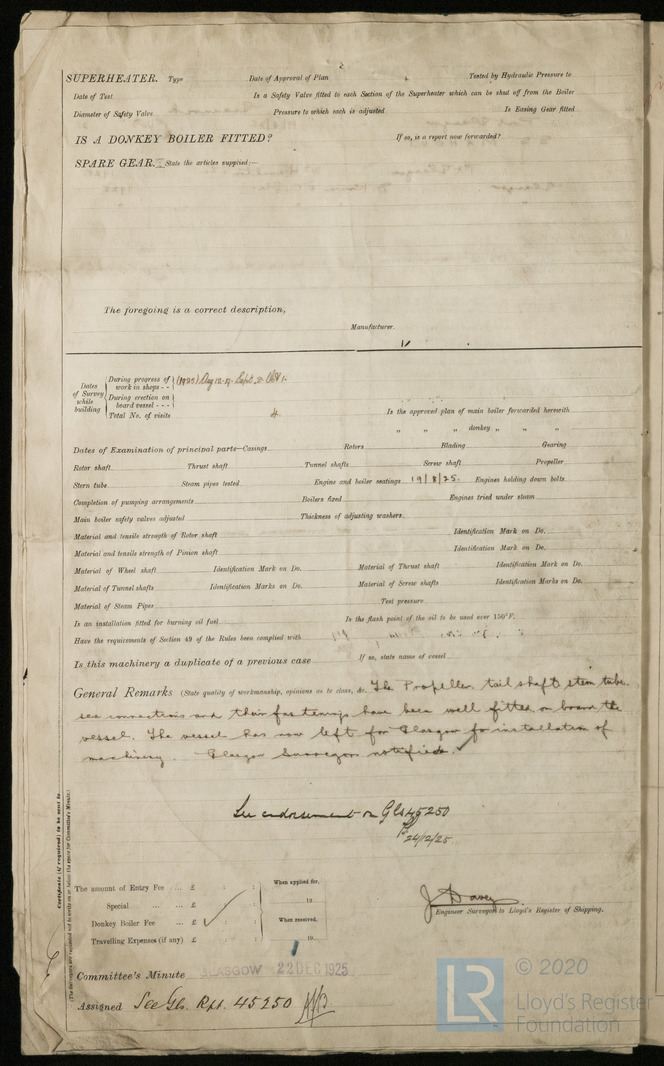 SUPERHEATER. Type Date of Approval of Plan Tested by Hydraulic Pressure to
Date of Test Is a Safety Valve fitted to each Section of the Superheater which can be shut off from the Boiler
Diameter of Safety Valve Pressure to which each is adjusted Is Easing Gear fitted
IS A DONKEY BOILER FITTED? If so, is a report now forwarded?
SPARE GEAR. State the articles supplied:—
The foregoing is a correct description,
Manufacturer.
Dates of Survey while building
During progress of work in shops - - (1925) Aug 12. 19. Sept 2. Oct 1.
During erection on board vessel - - -
Total No. of visits 4. Is the approved plan of main boiler forwarded herewith
„ „ donkey „ „ „
Dates of Examination of principal parts—Casings Rotors Blading Gearing
Rotor shaft Thrust shaft Tunnel shafts Screw shaft Propeller
Stern tube Steam pipes tested Engine and boiler seatings 19/8/25. Engines holding down bolts
Completion of pumping arrangements Boilers fixed Engines tried under steam
Main boiler safety valves adjusted Thickness of adjusting washers
Material and tensile strength of Rotor shaft Identification Mark on Do.
Material and tensile strength of Pinion shaft Identification Mark on Do.
Material of Wheel shaft Identification Mark on Do. Material of Thrust shaft Identification Mark on Do.
Material of Tunnel shafts Identification Marks on Do. Material of Screw shafts Identification Marks on Do.
Material of Steam Pipes Test pressure
Is an installation fitted for burning oil fuel Is the flash point of the oil to be used over 150°F.
Have the requirements of Section 49 of the Rules been complied with
Is this machinery a duplicate of a previous case If so, state name of vessel
General Remarks (State quality of workmanship, opinions as to class, &c. The Propeller, tail shaft, stern tube
sea connections and their fastenings have been well fitted on board the
vessel. The vessel has now left for Glasgow for installation of
machinery. Glasgow Surveyors notified.
See endorsement on Gls 45250
24/12/25.
Certificate (if required) to be sent to
(The Surveyors are requested not to write on or below the space for Committee's Minute.)
The amount of Entry Fee ... £ : : When applied for,
Special ... ... £ : : 19
Donkey Boiler Fee ... £ : : When received,
Travelling Expenses (if any) £ : : 19
J Davey
Engineer Surveyor to Lloyd's Register of Shipping.
Committee's Minute GLASGOW 22 DEC 1925
Assigned See Gls. Rpt. 45250
LR © 2020
Lloyd's Register
Foundation